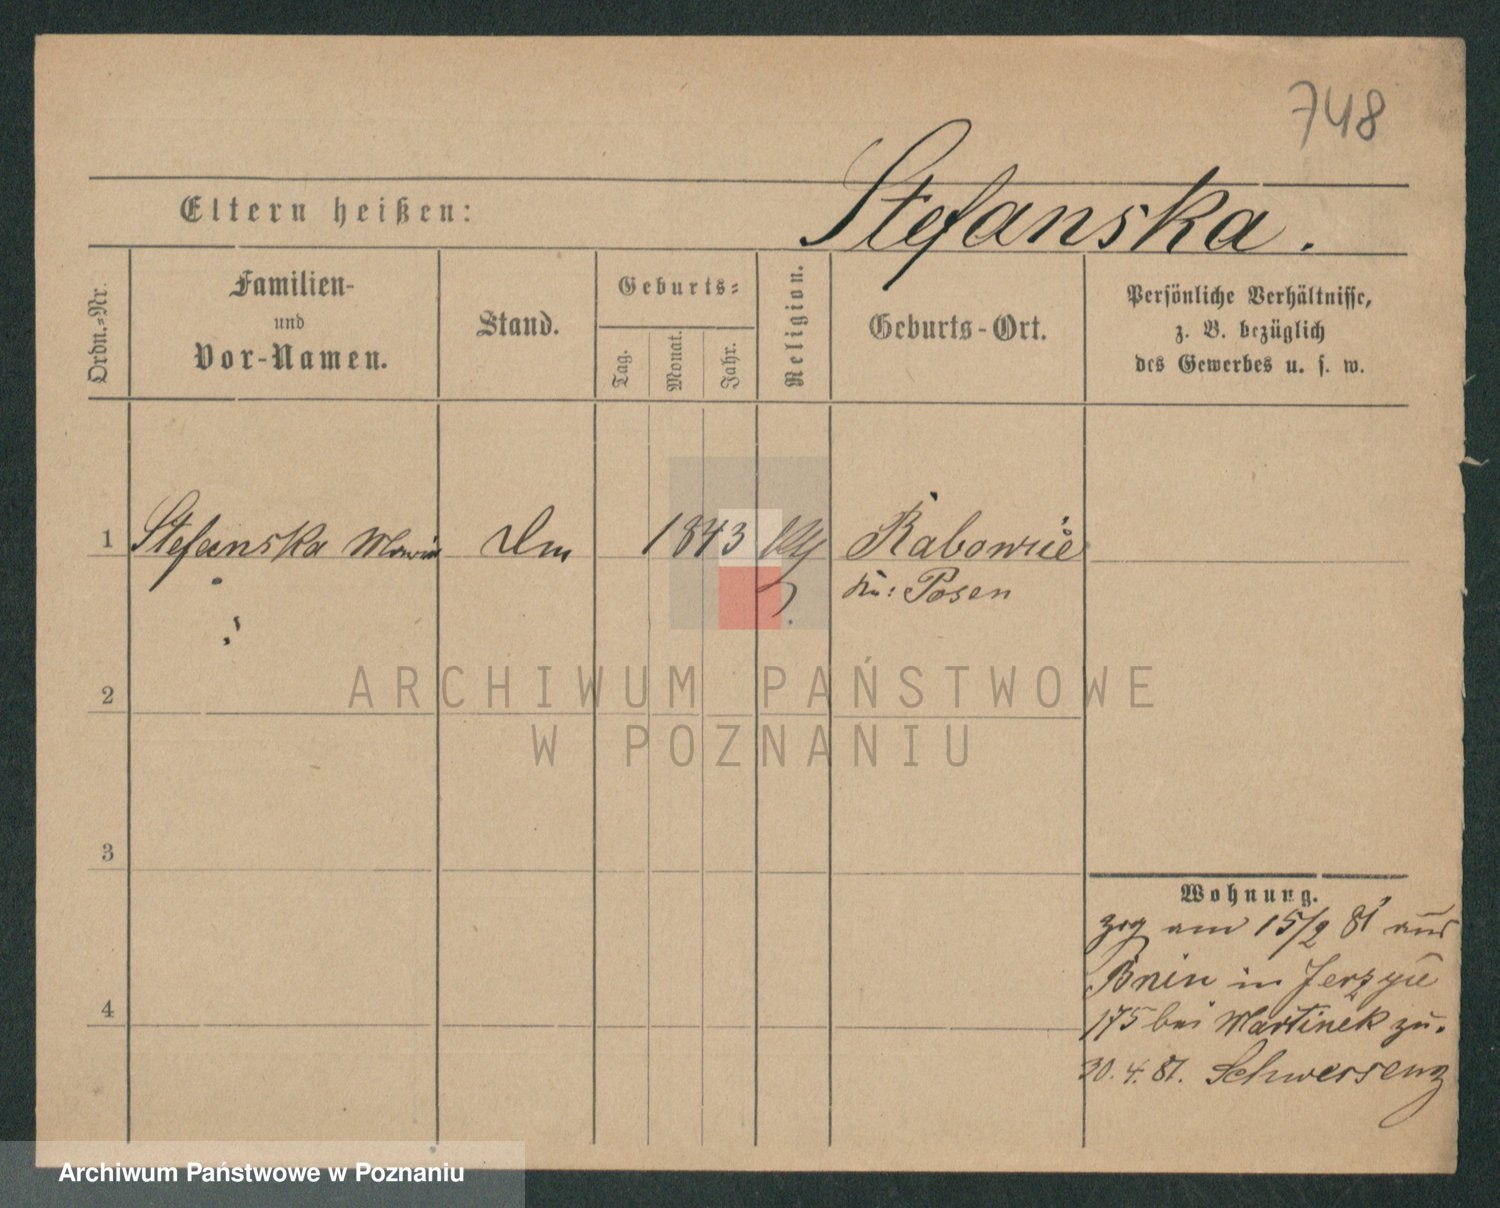 748
Eltern heißen:
Stefanska.
Ordn.-Nr.
Familien-
und
Vor-Namen.
Stand.
Geburts-
Tag.
Monat.
Jahr.
Religion.
Geburts-Ort.
Persönliche Verhältnisse,
z. B. bezüglich
des Gewerbes u. s. w.
1
Stefanska Maria
1843
Rabowice
Posen
ARCHIWUM PAŃSTWOWE
W POZNANIU
2
3
4
Wohnung.
zog am 15/2 81 aus
Bnin in Jerzyce
175 bei Martinek zu.
30. 4. 81. Schwersenz
Archiwum Państwowe w Poznaniu